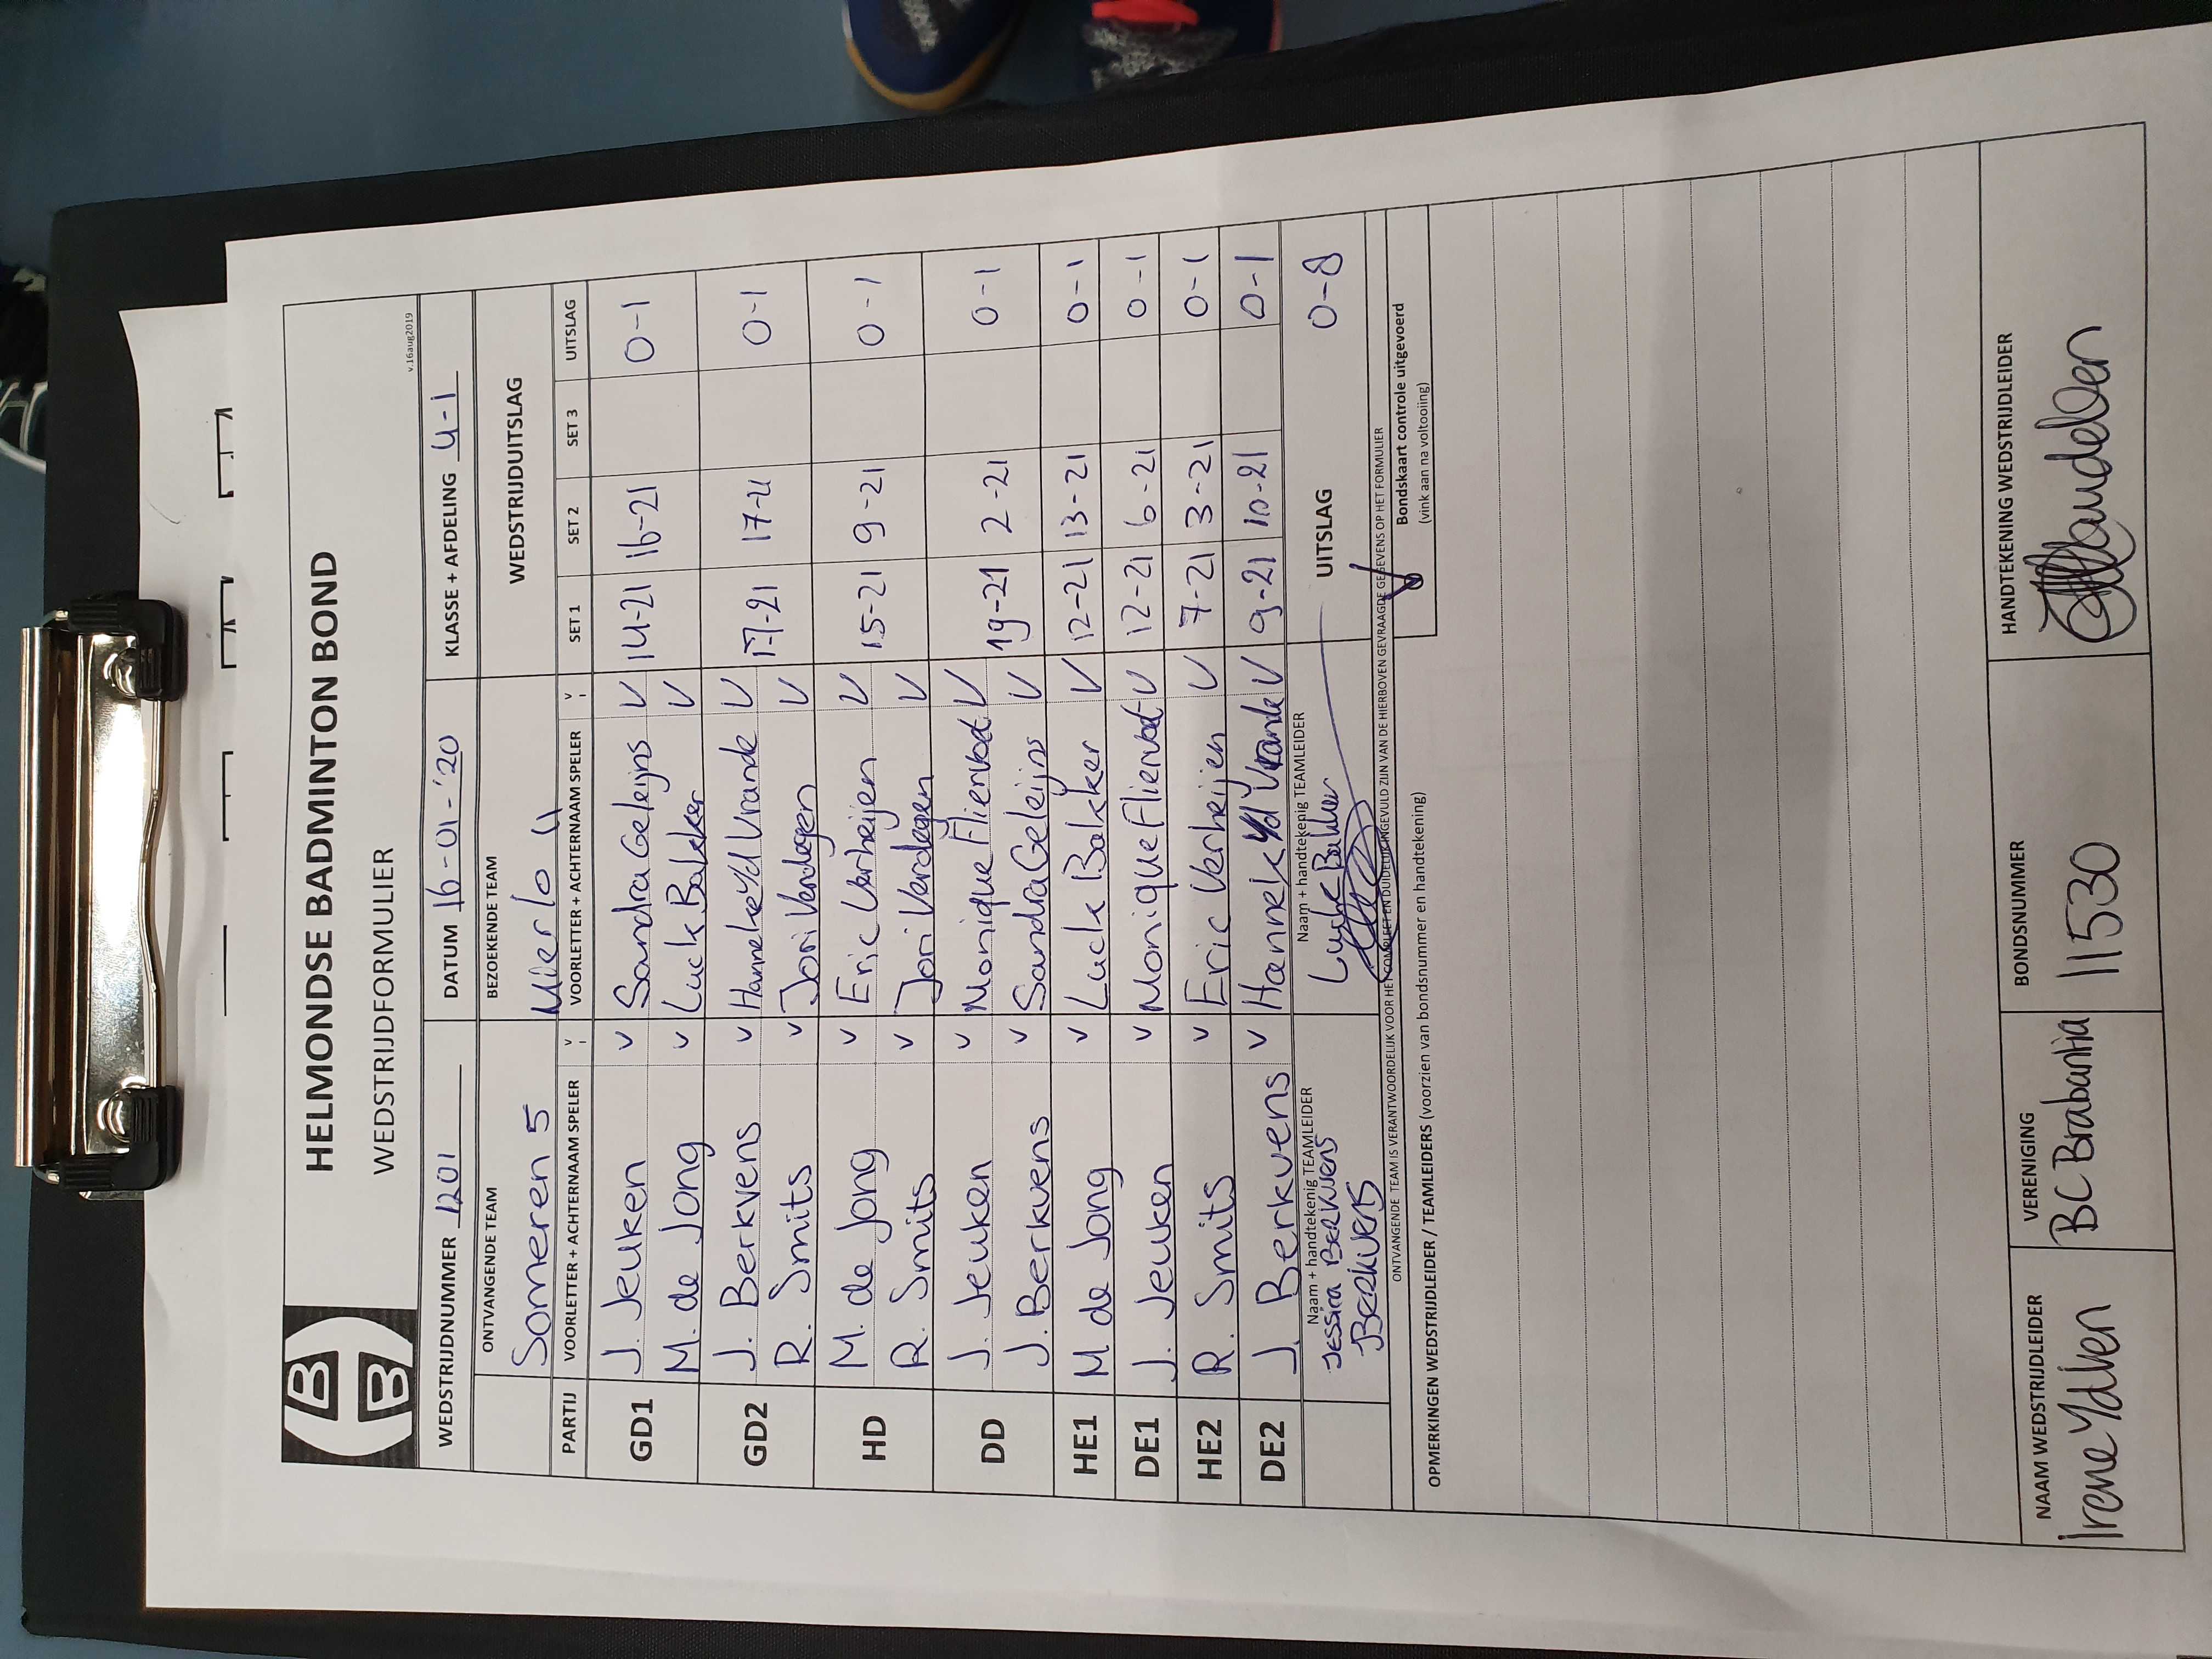 HELMONDSE BADMINTON BOND
WEDSTRIJDFORMULIER
v.16aug2019
WEDSTRIJDNUMMER 1201 DATUM 16-01-'20 KLASSE + AFDELING 4-1
ONTVANGENDE TEAM BEZOEKENDE TEAM WEDSTRIJDUITSLAG
Someren 5 Mierlo 4
PARTIJ VOORLETTER + ACHTERNAAM SPELER V VOORLETTER + ACHTERNAAM SPELER V SET 1 SET 2 SET 3 UITSLAG
GD1 J. Jeuken V Sandra Geleijns V 14-21 16-21 0-1
M. de Jong V Luck Bakker V
GD2 J. Berkvens V Hanneke vd Vrande V 17-21 17-21 0-1
R. Smits V Jori Verdegen V
HD M. de Jong V Eric Verheijen V 15-21 9-21 0-1
R. Smits V Jori Verdegen V
DD J. Jeuken V Monique Flienvoet V 19-21 2-21 0-1
J. Berkvens V Sandra Geleijns V
HE1 M de Jong V Luck Bakker V 12-21 13-21 0-1
DE1 J. Jeuken V Monique Flienvoet V 12-21 6-21 0-1
HE2 R. Smits V Eric Verheijen V 7-21 3-21 0-1
DE2 J. Berkvens V Hanneke vd Vrande V 9-21 10-21 0-1
Naam + handtekenig TEAMLEIDER Naam + handtekenig TEAMLEIDER UITSLAG 0-8
Jessica Berkvens Luck Bakker
JBerkvens
ONTVANGENDE TEAM IS VERANTWOORDELIJK VOOR HET COMPLEET EN DUIDELIJK INGEVULD ZIJN VAN DE HIERBOVEN GEVRAAGDE GEGEVENS OP HET FORMULIER
OPMERKINGEN WEDSTRIJDLEIDER / TEAMLEIDERS (voorzien van bondsnummer en handtekening)
Bondskaart controle uitgevoerd
(vink aan na voltooiing)
NAAM WEDSTRIJDLEIDER VERENIGING BONDSNUMMER HANDTEKENING WEDSTRIJDLEIDER
Irene BC Brabantia 11530